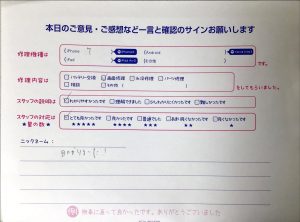 本日のご意見・ご感想など一言と確認のサインお願いします
修理機種は
iPhone 7
Android
iPad
その他
です。
修理内容は
バッテリー交換
画面修理
水没修理
パーツ修理
相談
その他
をしてもらいました。
スタッフの説明は
わかりやすかったです
理解できました
少しわかりにくかったです
難しかったです
スタッフの対応は
★星の数★
とても良かったです
良かったです
普通でした
良くなかったです
★★★★★
★★★★
★★★
★★
★
ニックネーム：
無事に直って良かったです。ありがとうございました